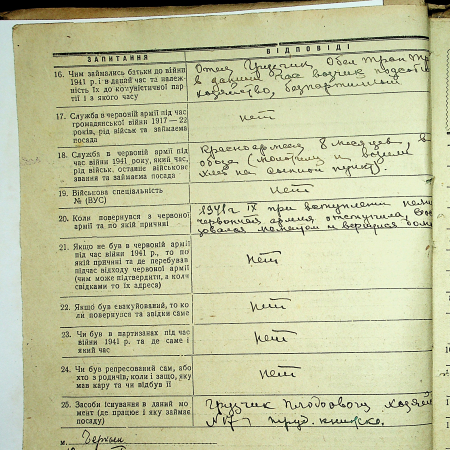 ЗАПИТАННЯ
ВІДПОВІДІ
16. Чим займались батьки до війни
1941 р. і в даний час та належ-
ність їх до комуністичної пар-
тії і з якого часу
Отец Грузчик
в данный час возчик
хозяйство, безпартийный
17. Служба в червоній армії під час
громадянської війни 1917—22
років, рід військ та займаема
посада
нет
18. Служба в червоній армії під
час війни 1941 року, який час,
рід військ, останнє військове
звання та займаема посада
Красноармеец 8 месяцев, в
обозе
хлеб на пункт).
19. Військова спеціальність
№ (ВУС)
Нет
20. Коли повернувся з червоної
армії та по якій причині
1941 г IX при вступлении
червонная армия отступила,
моментом и вернулся
21. Якщо не був в червоній армії
під час війни 1941 р., то по
якій причині та де перебував
підчас відходу червоної армії
(чим може підтвердити, а коли
свідками то їх адреса)
Нет
22. Якщо був евакуйований, то ко-
ли повернулся та звідки саме
нет
23. Чи був в партизанах під час
війни 1941 р. та де саме і
який час
Нет
24. Чи був репресований сам, або
хто з родичів, коли і защо, яку
мав кару та чи відбув її
нет
25. Засоби існування в даний мо-
мент (де працює і яку займає
посаду)
Грузчик Плодоовощ хозяй
№ 17
м.